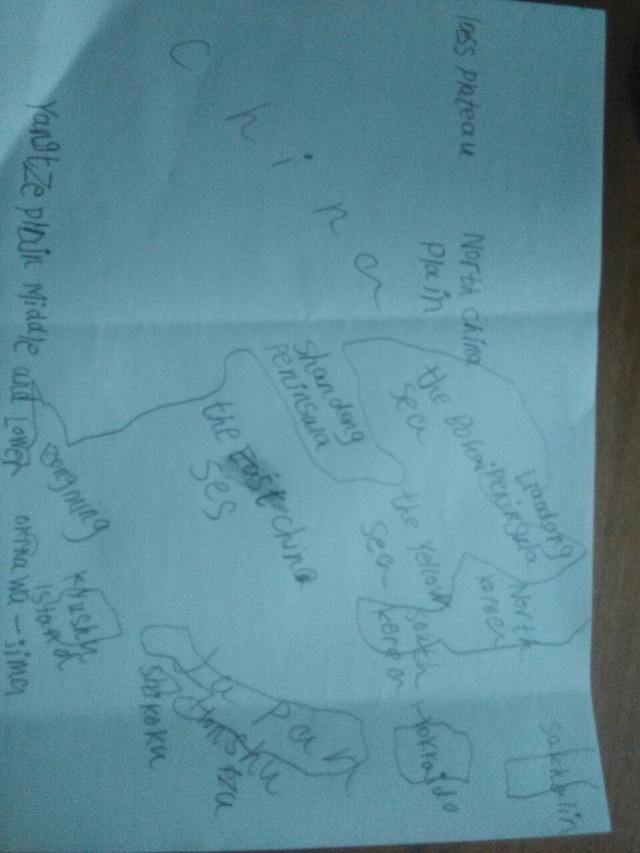 loss plateau
North china
plain
China
the Bohai
sea
Liaodong
peninsula
shandong
peninsula
the Yellow
sea
North
korea
south
korea
the East china
ses
Yangtze plain Middle and Lower
congming
okinawa-sima
kyushu
island
Japan
Shikoku
Hokkaido
sakhalin